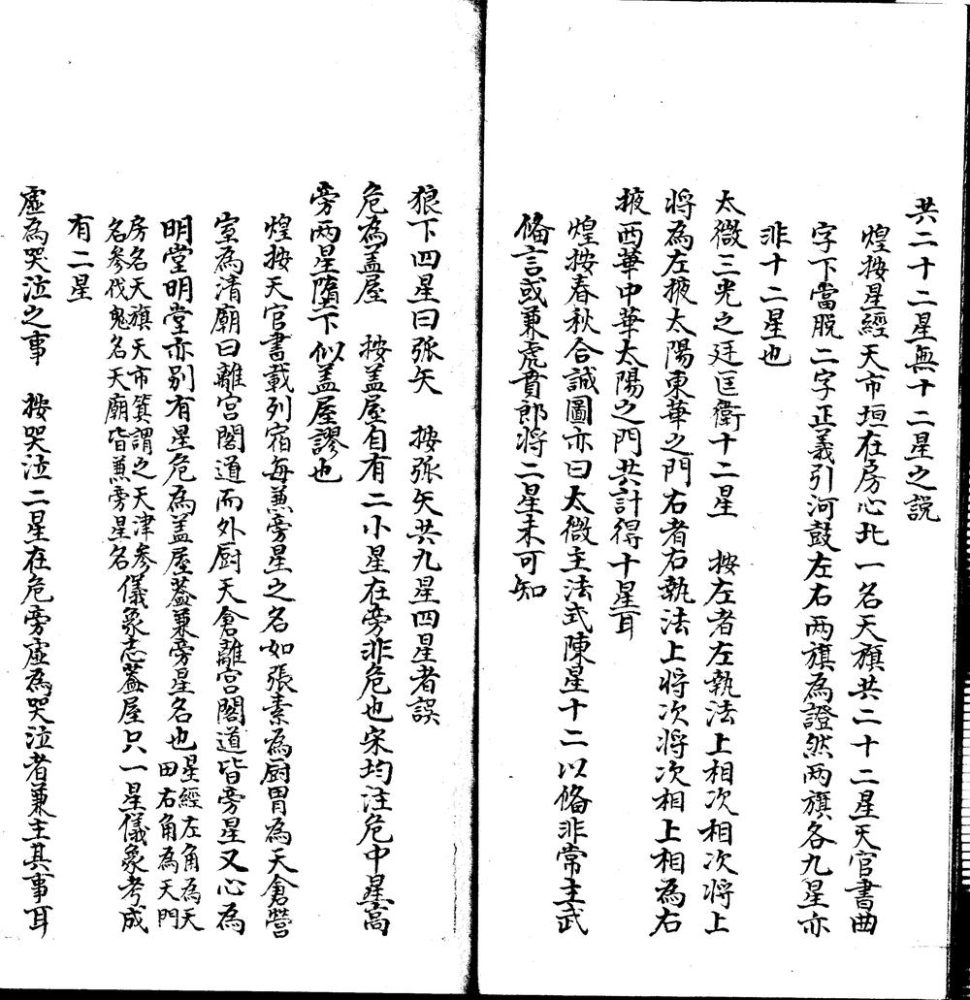 共二十二星無十二星之說
煌按星經天市垣在房心北一名天旗共二十二星天官書曲
字下當脫二字正義引河鼓左右两旗為證然两旗各九星亦
非十二星也
太微三光之廷匡衛十二星　按左者左執法上相次相次將上
將為左掖太陽東華之門右者右執法上將次將次相上相為右
掖西華中華太陽之門共計得十星耳
煌按春秋合誠圖亦曰太微主法式陳星十二以俻非常主武
俻言或兼虎賁郎將二星未可知
狼下四星曰弧矢　按弧矢共九星四星者誤
危為盖屋　按盖屋自有二小星在旁非危也宋均注危中星高
旁两星墮下似盖屋謬也
煌按天官書載列宿每兼旁星之名如張素為厨胃為天倉營
室為清廟曰離宫閣道而外厨天倉離宫閣道皆旁星又心為
明堂明堂亦别有星危為盖屋蓋兼旁星名也星經左角為天
田右角為天門
房名天旗天市箕謂之天津參
名參伐鬼名天廟皆兼旁星名儀象志蓋屋只一星儀象考成
有二星
虛為哭泣之事　按哭泣二星在危旁虛為哭泣者兼主其事耳